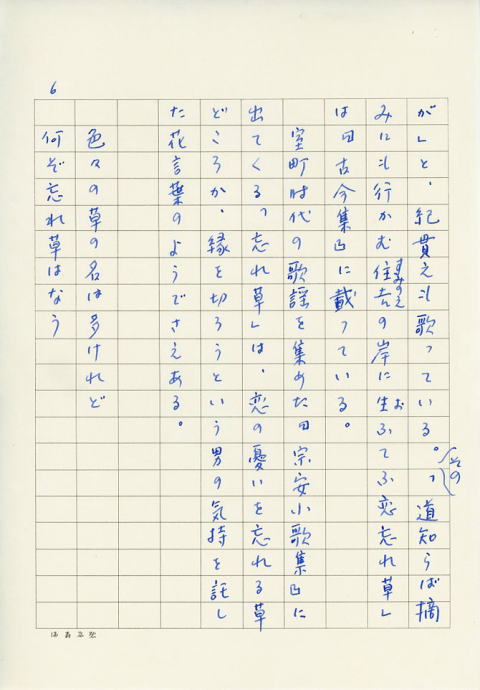 6
が」と、紀貫之も歌っている。「道知らば摘
その
みにも行かむ住吉の岸に生ふてふ恋忘れ草」
すみのえ
お
は『古今集』に載っている。
室町時代の歌謡を集めた『宗安小歌集』に
出てくる「忘れ草」は、恋の憂いを忘れる草
どころか、縁を切ろうという男の気持を託し
た花言葉のようでさえある。
色々の草の名は多けれど
何ぞ忘れ草はなう